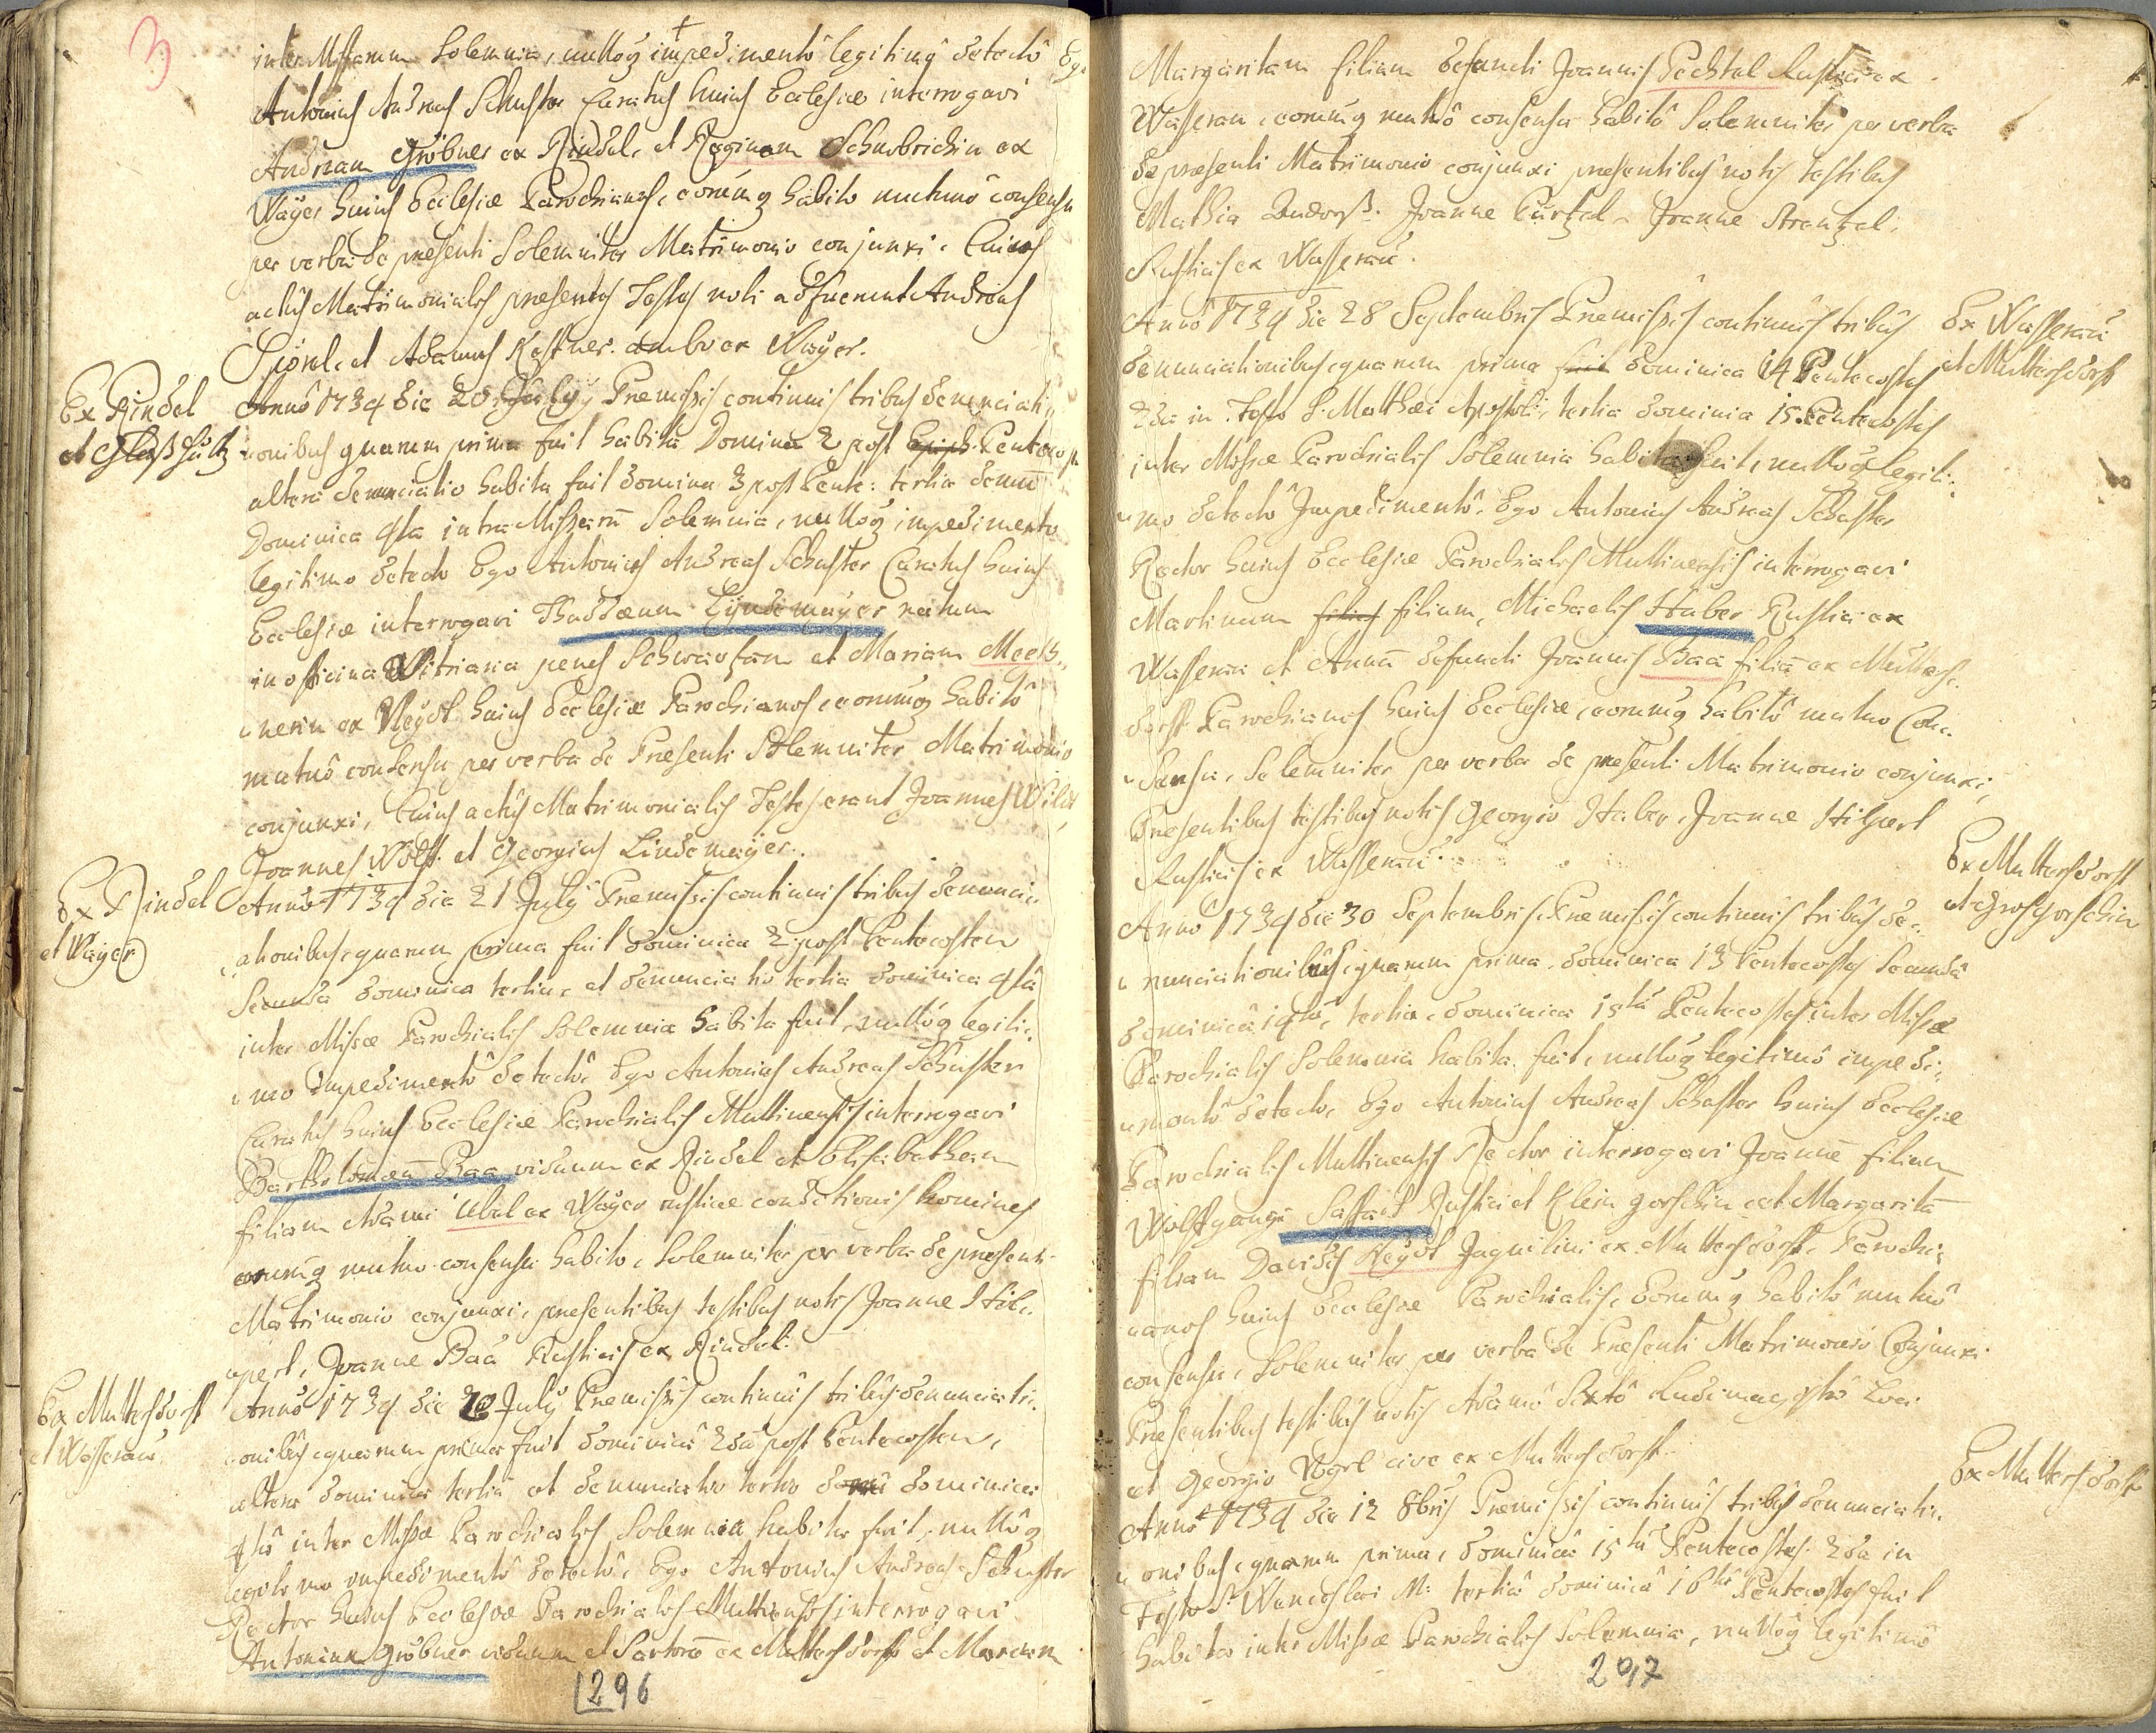 3
inter Missarum Solemnia, nulloq impedimentô legitimô detectô Ego
Antonius Andreas Schuster Curatus huius Ecclesiae interrogavi
Andream Gröbner ex Rindel, et Reginam Schwbrichin ex
Wayer huius Ecclesiae Parochianos, eorumq habito mutuo consensu
per verba de presenti Solemniter Matrimonio conjunxi. Cuius
actus Matrimonialis presentes Testes noti adfuerunt Andreas
et Adamus Kestner. ambo ex Wayer.
Ex Rindel
et
Annô 1734 die 20 July, Premissis continuis tribus denunciati
onibus quarum prima fuit habita Dominica 2 post Pentecost
altera denunciatio habita fuit dominica 3 post Pente: tertia demu
Dominica 4ta intra Missaru Solemnia, nulloq impedimento
legitimo detecto Ego Antonius Andreas Schuster Curatus huius
Ecclesiae interrogavi Thaddaeum Lyndemayer natum
in officina Vitriaria penes et Mariam
nerin ex Neydl huius Ecclesiae Parochianos, eorumq habitô
mutuô consensu per verba de Presenti Solemniter Matrimonio
conjunxi, Cuius actus Matrimonialis Testes erant Joannes
Joannes Wolf. et Georgius Lindemayer.
Ex Rindel
et Wayer
Annô 1734 die 21 July Premissis continuis tribus denunci
ationibus, quarum prima fuit dominica 2 post Pentecosten
Secunda dominica tertia, et denunciatio tertia dominica 4ta
inter Missae Parochialis Solemnia habita fuit, nulloq legiti:
mo Impedimentô detectô, Ego Antonius Andreas Schuster
Curatus huius Ecclesiae Parochialis Muttinensis interrogavi
Bartholomaeu Baa viduum ex Rindel et Elisabetham
filiam Adami Ubel ex Wayer rusticae conditionis homines
eorumq mutuo consensu habito, Solemniter per verba de presenti
Matrimonio conjunxi, presentibus testibus notis Joanne Hil
pert, Joanne Baa Rusticis ex Rindel.
Ex Muttersdorf
et Wasserau
Annô 1734 die 20 July Premissis continuis tribus denunciati
onibus, quarum prima fuit dominica 2da post Pentecosten,
altera dominica tertia et denunciatio tertia dominica
4ta inter Missae Parochialis Solemnia habita fuit, nulloq
legitimo impedimentô detectô, Ego Antonius Andreas Schuster
Rector huius Ecclesiae Parochialis Muttinensis interrogavi
Antonium Gröbner viduum et Sartore ex Muttersdorf et Mariam
296
Margaritam filiam defuncti Joannis Pechtel Rustici ex
Wasserau, eorumq mutuô consensu habitô Solemniter per verba
de praesenti Matrimonio conjunxi presentibus notis testibus
Mathia Joanne Joanne Strentzel
Rusticis ex Wasserau.
Ex Wasserau
et Muttersdorf
Annô 1734 die 28 Septembris Premissis continuis tribus
denunciationibus, quarum prima fuit dominica 14 Pentecostes
2da in Festo S. Matthaei Apostoli, tertia dominica 15 Pentecostes
inter Missae Parochialis Solemnia habita fuit, nulloq legiti:
mo detectô Impedimentô, Ego Antonius Andreas Schuster
Rector huius Ecclesiae Parochialis Muttinensis interrogavi
Martinum filius filium Michaelis Huber Rustici ex
Wasserau et Anna defuncti Joannis Baa filia ex Mutters
dorf Parochianos huius Ecclesiae, eorumq habitô mutuo Con
Sensu, Solemniter per verba de presenti Matrimonio conjunxi,
Presentibus testibus notis Georgio Huber, Joanne Hilpert
Rusticis ex Wasserau.
Ex Muttersdorf
et Grosgorschin
Annô 1734 die 30 Septembris Premissis continuis tribus de
nunciationibus, quarum prima dominica 13 Pentecostes Secunda
dominica 14ta, tertia dominica 15ta Pentecostes inter Missae
Parochialis Solemnia habita fuit, nulloq legitimô impedi
mentô detecto, Ego Antonius Andreas Schuster huius Ecclesiae
Parochialis Muttinensis Rector interrogavi Joanne filium
Wolfgangi Rustici et Klein gorschin et Margarita
filiam Davidis Heydl Inquilini ex Muttersdorf, Parochi
anos huius Ecclesiae Parochialis, Eorumq habitô mutuô
consensu, Solemniter per verba de Presenti Matrimonio Conjunxi
Presentibus testibus notis Adamô Sixtô Ludimagistrô Loci
et Georgio Vogel cive ex Muttersdorf.
Ex Muttersdorf
Annô 1734 die 12 8bris Premissis continuis tribus denunciati
onibus, quarum prima, dominica 15ta Pentecostes 2da in
Festo S. Wenceslai M: tertia dominica 16ta Pentecostes fuit
habita inter Missae Parochialis Solemnia, nulloq legitimô
297